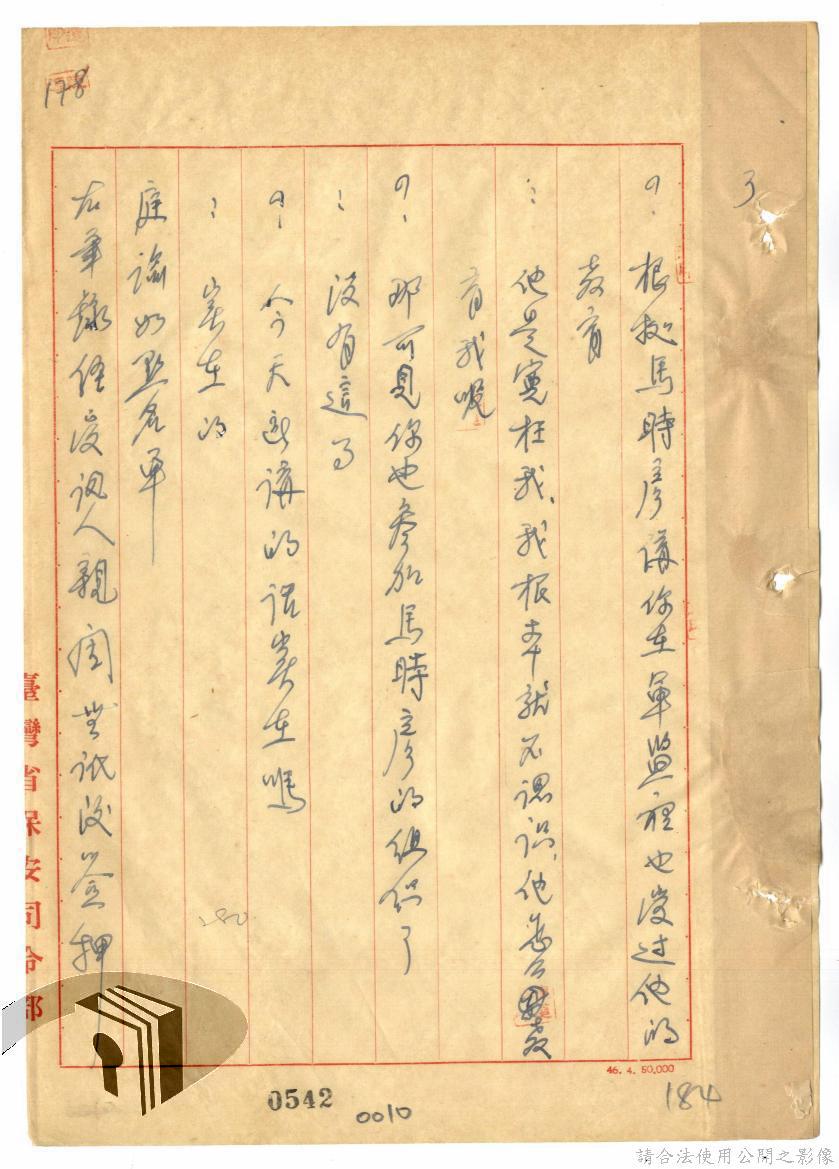 178
3
?: 根據馬時彥講你在軍監裡也受过他的
教育
: 他是寃枉我、我根本就不認識、他怎么教
育我呢
?: 那可見你也參加馬時彥的組織了
: 沒有這了
?: 今天所講的話實在嗎
: 實在的
庭諭如點名單
右筆錄經受訊人親閱無訛後簽押
臺灣省保安司令部
180
46.4.50.000
0542
0010
184
請合法使用公開之影像